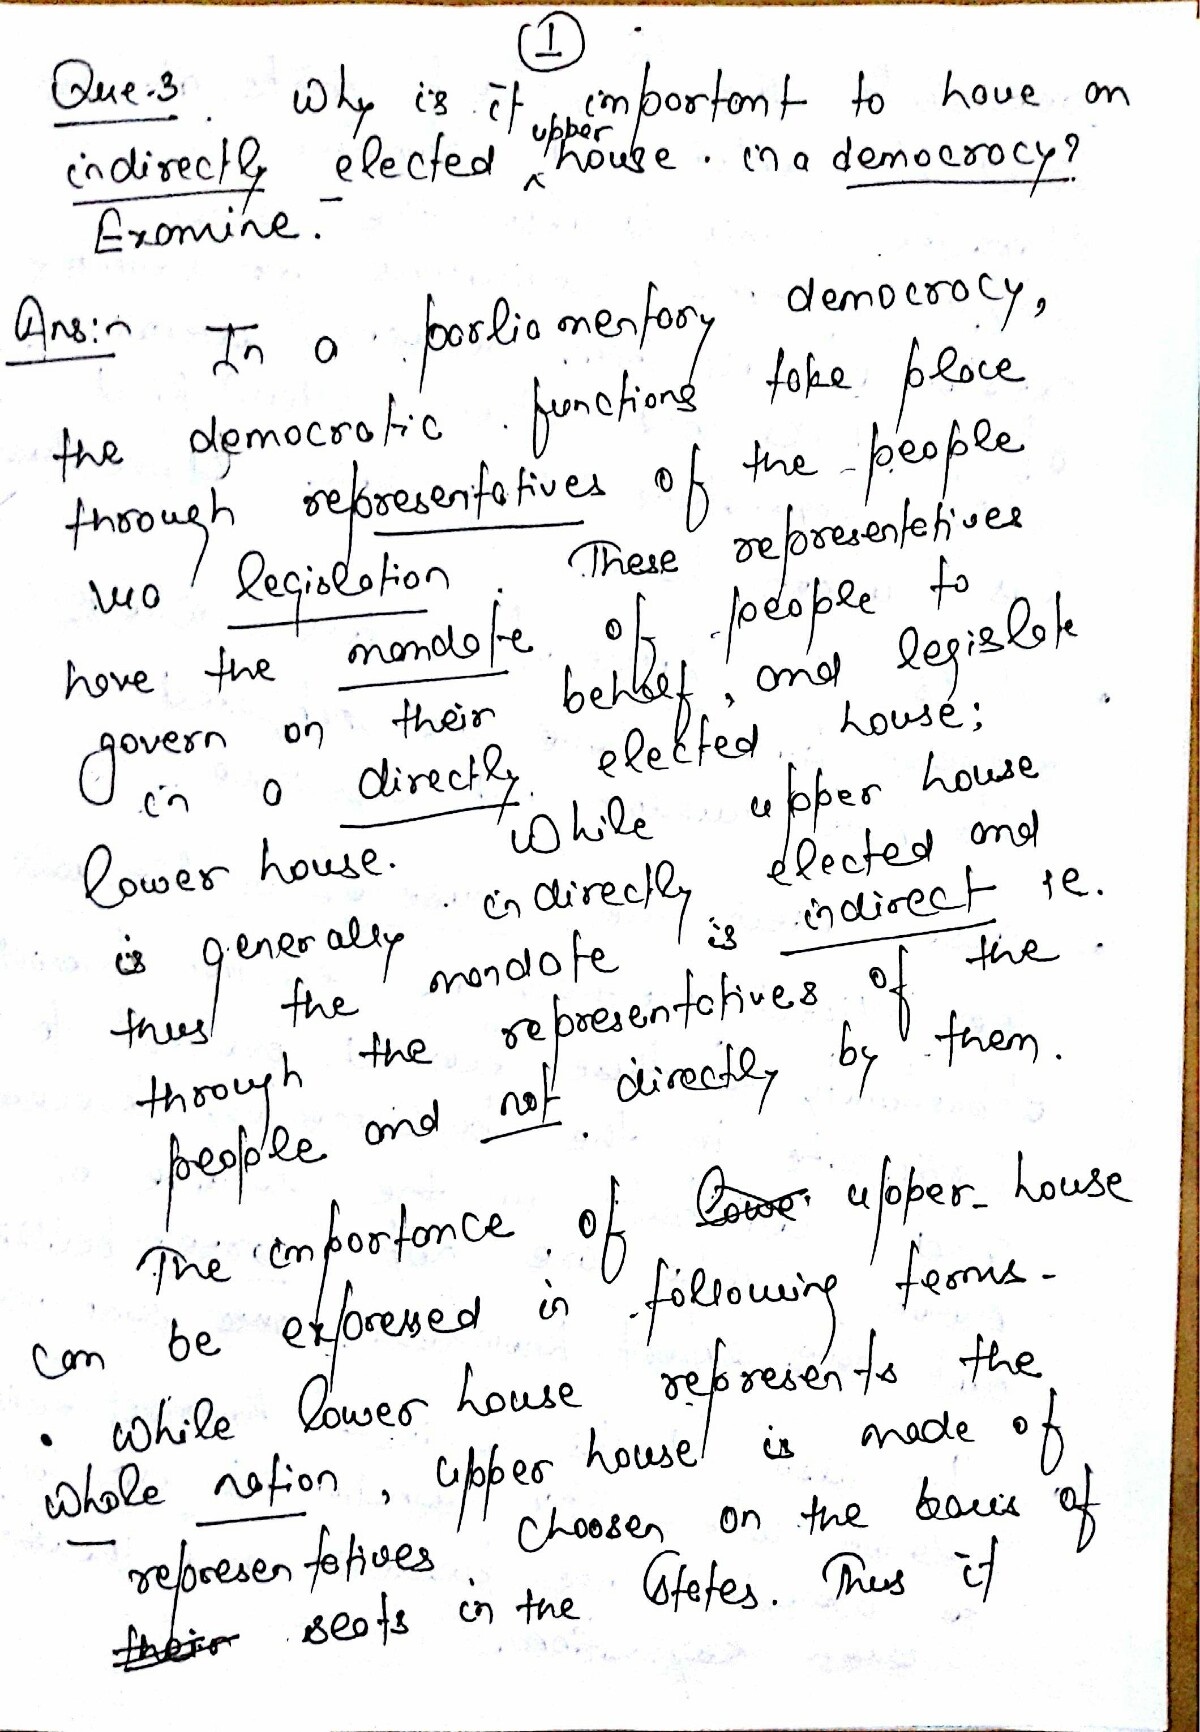 1
Que.3. Why is it important to have an
indirectly elected upper house. in a democracy?
Examine.
Ans:n In a parliamentary democracy,
the democratic functions take place
through representatives of the people
legislation. These representetives
have the mandate of people to
govern on their behalf, and legislate
in a directly elected house;
lower house. While upper house
is generally indirectly elected and
thus the mandate is indirect ie.
through the representatives of the
people and not directly by them.
The importance of lowe upper-house
can be expressed in following terms-
• While lower house represents the
whole nation, upper house is made of
representetives choosen on the basis of
their seats in the States. Thus it